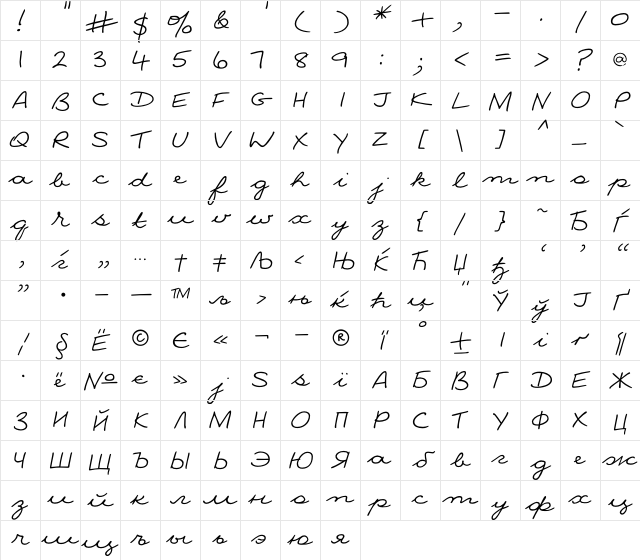 ! " # $ % & ' ( ) * + , - . / 0
1 2 3 4 5 6 7 8 9 : ; < = > ? @
A B C D E F G H I J K L M N O P
Q R S T U V W X Y Z [ \ ] ^ _ `
a b c d e f g h i j k l m n o p
q r s t u v w x y z { | } ~ Ђ Ѓ
‚ ѓ „ … † ‡ Љ ‹ Њ Ќ Ћ Џ ђ ‘ ’ “
” • – — ™ љ › њ ќ ћ џ " Ў ў Ј Ґ
¦ § Ё © Є « ¬ - ® Ї ° ± І і ґ ¶
· ё № є » ј Ѕ ѕ ї А Б В Г Д Е Ж
З И Й К Л М Н О П Р С Т У Ф Х Ц
Ч Ш Щ Ъ Ы Ь Э Ю Я а б в г д е ж
з и й к л м н о п р с т у ф х ц
ч ш щ ъ ы ь э ю я